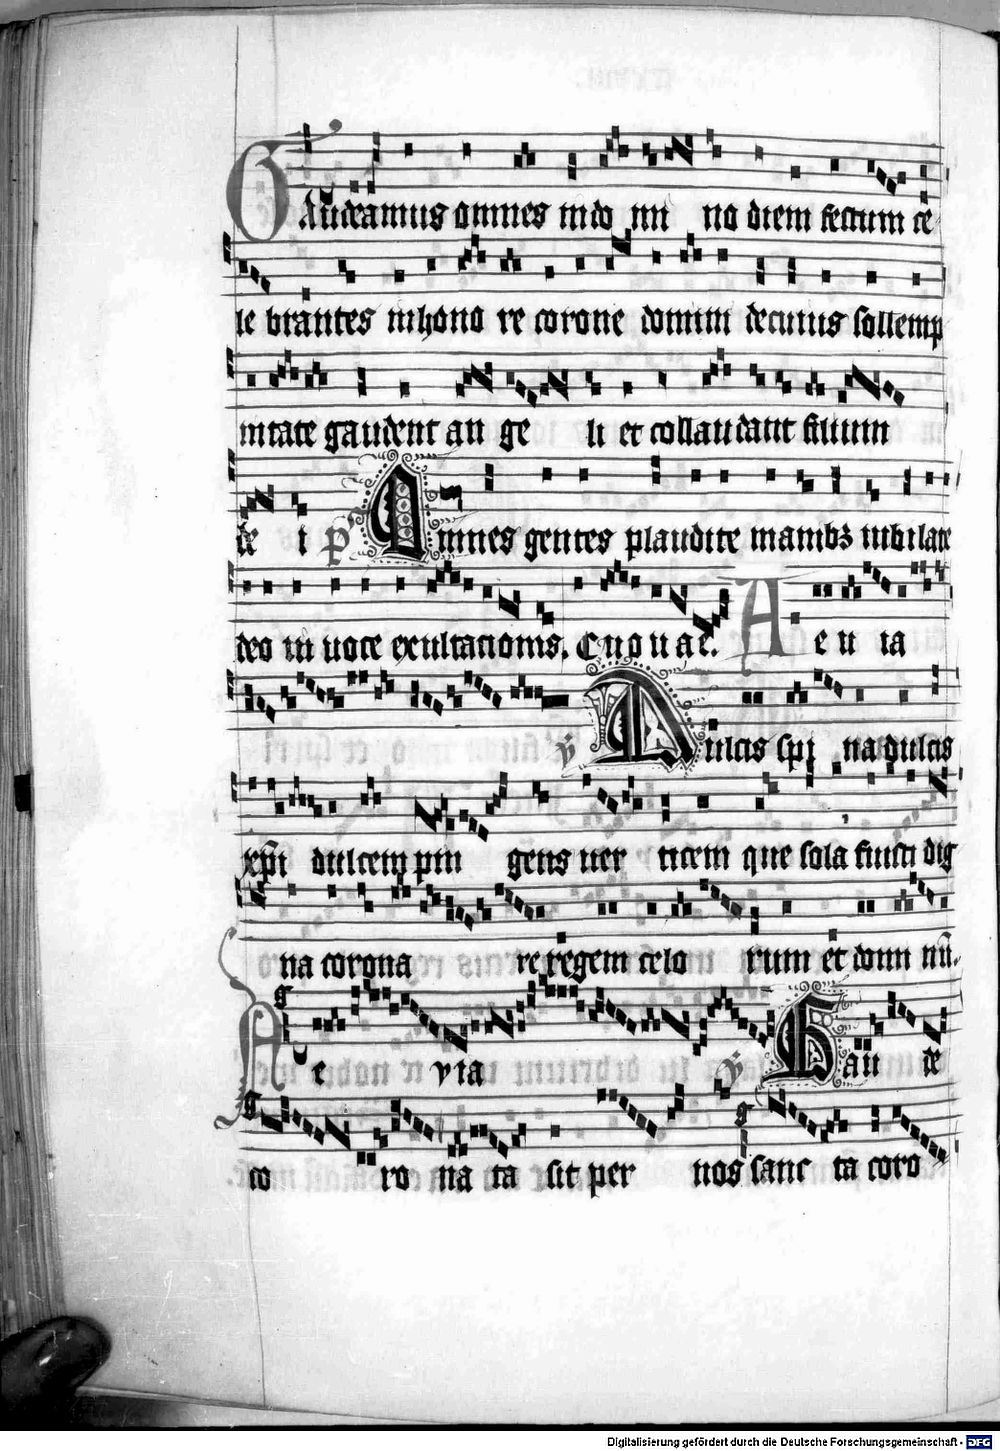 Gaudeamus omnes in do mi no diem festum ce
le brantes in hono re corone domini de cuius sollemp
nitate gaudent an ge li et collaudant filium
de i p̄s Omnes gentes plaudite manibꝫ iubilate
deo in uoce exultacionis. Euouae. A e u ia
ṽ Dulcis spi na dulcis
xp̄i dulcem pin gens uer ticem que sola fuisti dig
na corona re regem celo rum et domi nū.
A e v ia ṽ Gau de
co ro na ta sit per nos sanc ta coro
Digitalisierung gefördert durch die Deutsche Forschungsgemeinschaft - DFG